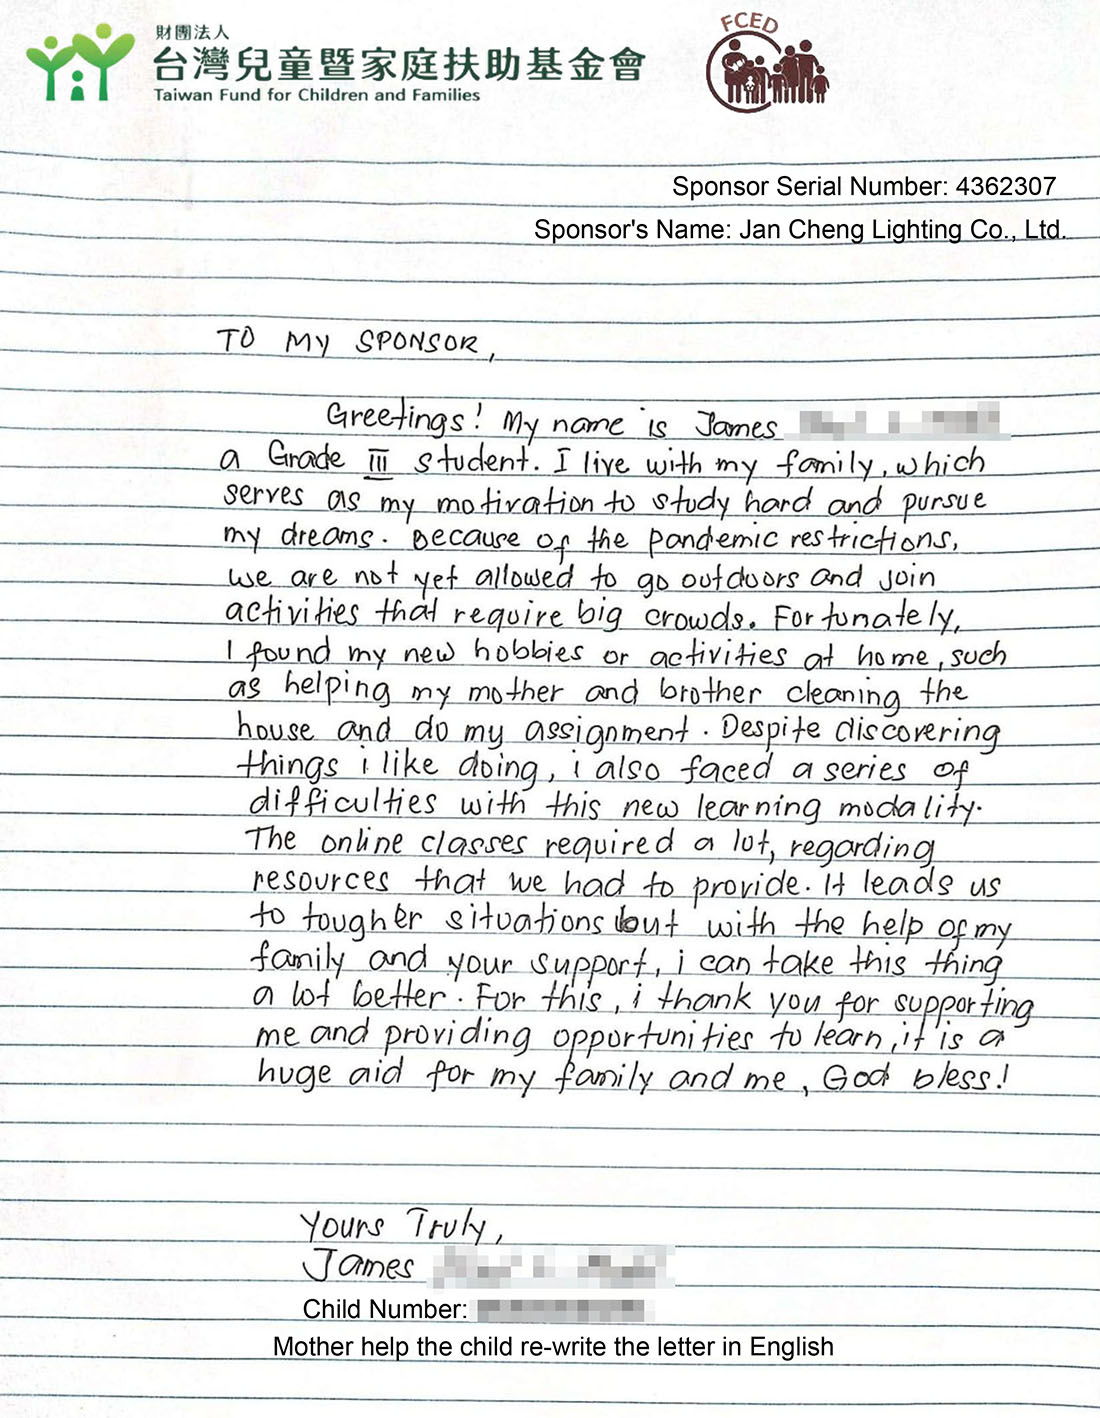 財團法人
台灣兒童暨家庭扶助基金會
Taiwan Fund for Children and Families
FCED
Sponsor Serial Number: 4362307
Sponsor's Name: Jan Cheng Lighting Co., Ltd.
TO MY SPONSOR,
Greetings! My name is James
a Grade III student. I live with my family, which
serves as my motivation to study hard and pursue
my dreams. Because of the pandemic restrictions,
we are not yet allowed to go outdoors and join
activities that require big crowds. Fortunately,
I found my new hobbies or activities at home, such
as helping my mother and brother cleaning the
house and do my assignment. Despite discovering
things i like doing, i also faced a series of
difficulties with this new learning modality.
The online classes required a lot, regarding
resources that we had to provide. It leads us
to tougher situations but with the help of my
family and your support, i can take this thing
a lot better. For this, i thank you for supporting
me and providing opportunities to learn, it is a
huge aid for my family and me, God bless!
Yours Truly,
James
Child Number:
Mother help the child re-write the letter in English